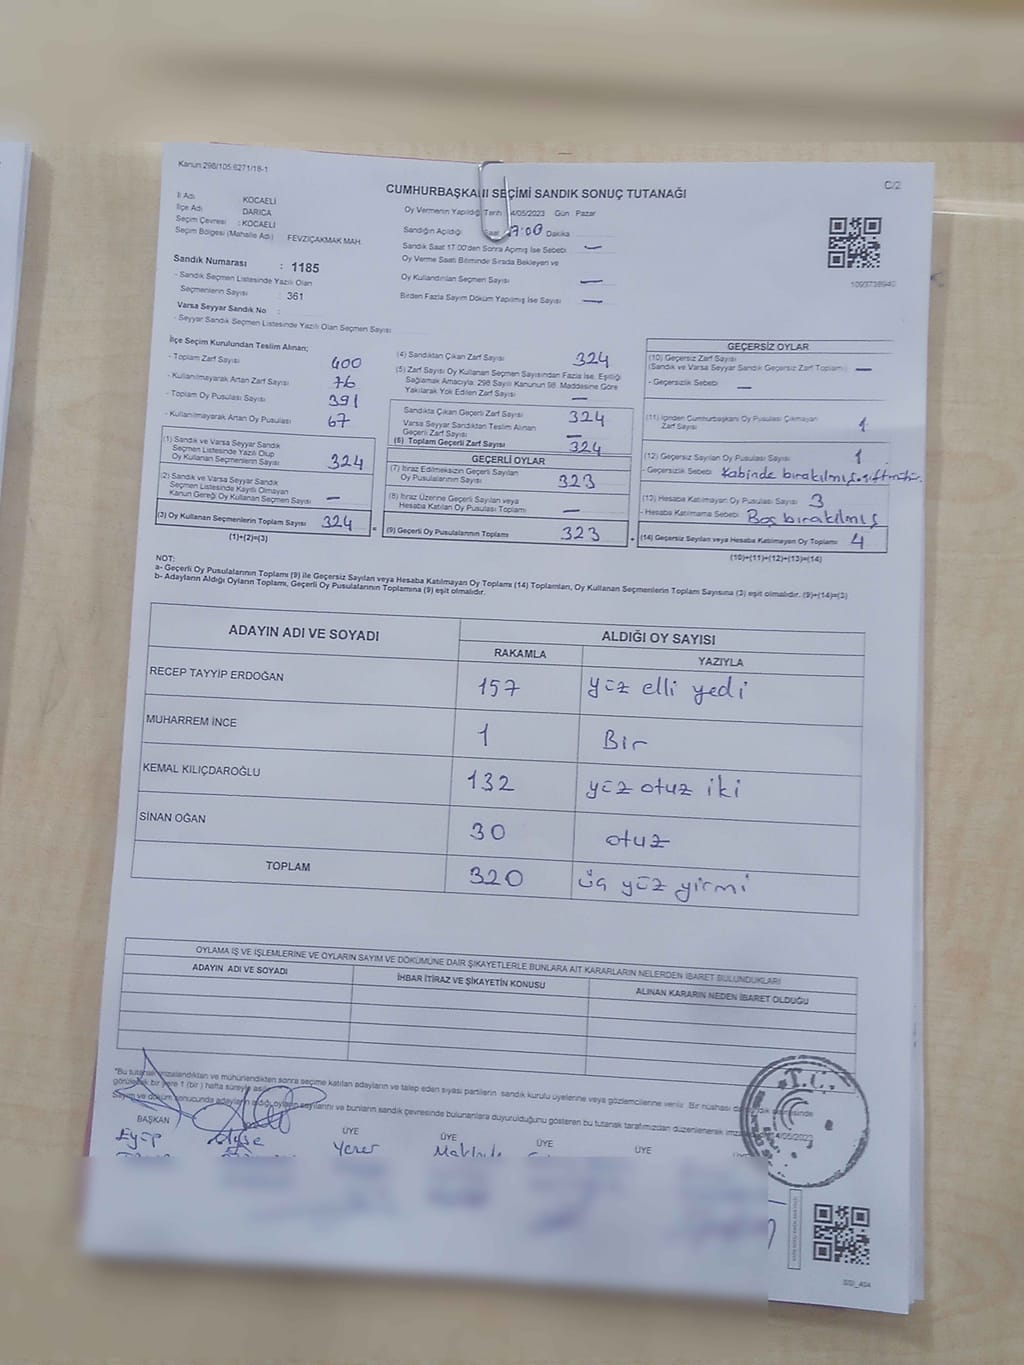 Kanun 298/105:6271/18-1
C/2
CUMHURBAŞKANI SEÇİMİ SANDIK SONUÇ TUTANAĞI
İl Adı KOCAELİ
İlçe Adı DARICA
Seçim Çevresi : KOCAELİ
Seçim Bölgesi (Mahalle Adı) FEVZİÇAKMAK MAH.
Sandık Numarası : 1185
- Sandık Seçmen Listesinde Yazılı Olan
Seçmenlerin Sayısı : 361
Varsa Seyyar Sandık No :
- Seyyar Sandık Seçmen Listesinde Yazılı Olan Seçmen Sayısı
Oy Vermenin Yapıldığı Tarih 4/05/2023 Gün Pazar
Sandığın Açıldığı Saat 17:00 Dakika
Sandık Saat 17.00'den Sonra Açımış İse Sebebi —
Oy Verme Saati Bitiminde Sırada Bekleyen ve
Oy Kullandırılan Seçmen Sayısı —
Birden Fazla Sayım Döküm Yapılmış İse Sayısı —
1093738940
İlçe Seçim Kurulundan Teslim Alınan;
- Toplam Zarf Sayısı 400
- Kullanılmayarak Artan Zarf Sayısı 76
- Toplam Oy Pusulası Sayısı 391
- Kullanılmayarak Artan Oy Pusulası 67
(1) Sandık ve Varsa Seyyar Sandık
Seçmen Listesinde Yazılı Olup
Oy Kullanan Seçmenlerin Sayısı 324
(2) Sandık ve Varsa Seyyar Sandık
Seçmen Listesinde Kayıtlı Olmayan
Kanun Gereği Oy Kullanan Seçmen Sayısı —
(3) Oy Kullanan Seçmenlerin Toplam Sayısı 324 =
(1)+(2)=(3)
(4) Sandıktan Çıkan Zarf Sayısı 324
(5) Zarf Sayısı Oy Kullanan Seçmen Sayısından Fazla İse, Eşitliği
Sağlamak Amacıyla; 298 Sayılı Kanunun 98. Maddesine Göre
Yakılarak Yok Edilen Zarf Sayısı —
Sandıkta Çıkan Geçerli Zarf Sayısı 324
Varsa Seyyar Sandıktan Teslim Alınan
Geçerli Zarf Sayısı —
(6) Toplam Geçerli Zarf Sayısı 324
GEÇERLİ OYLAR
(7) İtiraz Edilmeksizin Geçerli Sayılan
Oy Pusulalarının Sayısı 323
(8) İtiraz Üzerine Geçerli Sayılan veya
Hesaba Katılan Oy Pusulası Toplamı —
(9) Geçerli Oy Pusulalarının Toplamı 323 +
GEÇERSİZ OYLAR
(10) Geçersiz Zarf Sayısı
(Sandık ve Varsa Seyyar Sandık Geçersiz Zarf Toplamı) —
- Geçersizlik Sebebi —
(11) İçinden Cumhurbaşkanı Oy Pusulası Çıkmayan
Zarf Sayısı 1
(12) Geçersiz Sayılan Oy Pusulası Sayısı 1
- Geçersizlik Sebebi Kabinde bırakılmış
(13) Hesaba Katılmayan Oy Pusulası Sayısı 3
- Hesaba Katılmama Sebebi Boş bırakılmış
(14) Geçersiz Sayılan veya Hesaba Katılmayan Oy Toplamı 4
(10)+(11)+(12)+(13)=(14)
NOT:
a- Geçerli Oy Pusulalarının Toplamı (9) ile Geçersiz Sayılan veya Hesaba Katılmayan Oy Toplamı (14) Toplamları, Oy Kullanan Seçmenlerin Toplam Sayısına (3) eşit olmalıdır. (9)+(14)=(3)
b- Adayların Aldığı Oyların Toplamı, Geçerli Oy Pusulalarının Toplamına (9) eşit olmalıdır.
ADAYIN ADI VE SOYADI ALDIĞI OY SAYISI
RAKAMLA YAZIYLA
RECEP TAYYİP ERDOĞAN 157 yüz elli yedi
MUHARREM İNCE 1 Bir
KEMAL KILIÇDAROĞLU 132 yüz otuz iki
SİNAN OĞAN 30 otuz
TOPLAM 320 üç yüz yirmi
OYLAMA İŞ VE İŞLEMLERİNE VE OYLARIN SAYIM VE DÖKÜMÜNE DAİR ŞİKAYETLERLE BUNLARA AİT KARARLARIN NELERDEN İBARET BULUNDUKLARI
ADAYIN ADI VE SOYADI İHBAR İTİRAZ VE ŞİKAYETİN KONUSU ALINAN KARARIN NEDEN İBARET OLDUĞU
*Bu tutanak imzalandıktan ve mühürlendikten sonra seçime katılan adayların ve talep eden siyasi partilerin sandık kurulu üyelerine veya gözlemcilerine verilir. Bir nüshası da sandık çevresinde
görülecek bir yere 1 (bir) hafta süreyle asılır.
Sayım ve döküm sonucunda adayların aldığı oyların sayılarını ve bunların sandık çevresinde bulunanlara duyurulduğunu gösteren bu tutanak tarafımızdan düzenlenerek 4/05/2023
BAŞKAN ÜYE ÜYE ÜYE ÜYE
Eyüp Ayşe Yener
T.C.
SSI_404